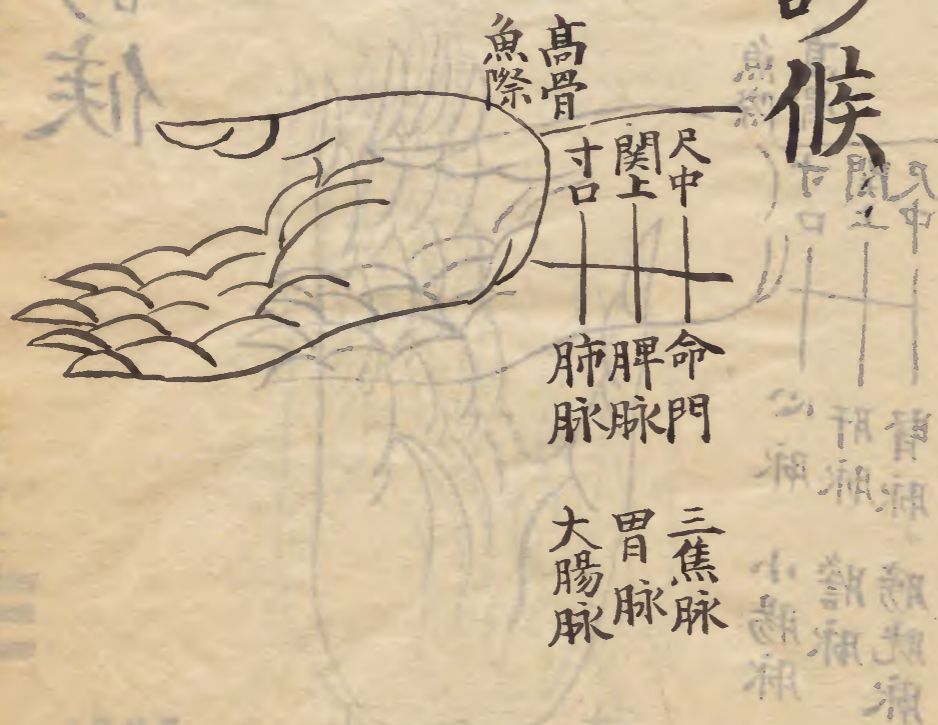 候
高骨
魚際
尺中
関上
寸口
命門
脾脉
肺脉
三焦脉
胃脉
大腸脉